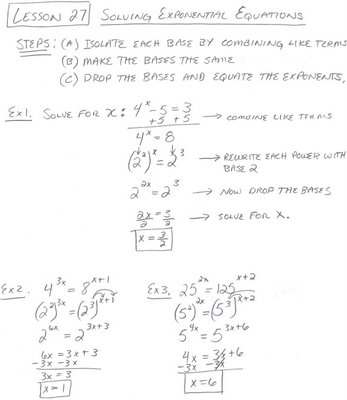 LESSON 27 SOLVING EXPONENTIAL EQUATIONS
STEPS: (A) ISOLATE EACH BASE BY COMBINING LIKE TERMS
(B) MAKE THE BASES THE SAME
(C) DROP THE BASES AND EQUATE THE EXPONENTS.
Ex1. SOLVE FOR x: 4^x - 5 = 3
+5 +5 → COMBINE LIKE TERMS
4^x = 8
(2^2)^x = 2^3 → REWRITE EACH POWER WITH
BASE 2
2^2x = 2^3 → NOW DROP THE BASES
2x/2 = 3/2 → SOLVE FOR X.
x = 3/2
Ex2. 4^3x = 8^(x+1)
(2^2)^3x = (2^3)^(x+1)
2^6x = 2^(3x+3)
6x = 3x + 3
-3x -3x
3x = 3
x = 1
Ex3. 25^2x = 125^(x+2)
(5^2)^2x = (5^3)^(x+2)
5^4x = 5^(3x+6)
4x = 3x + 6
-3x -3x
x = 6